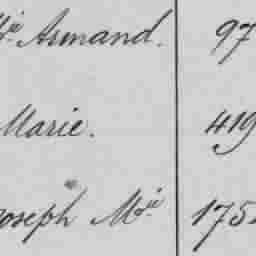 Mie Armand. 97
Marie. 419
Joseph Mie 175